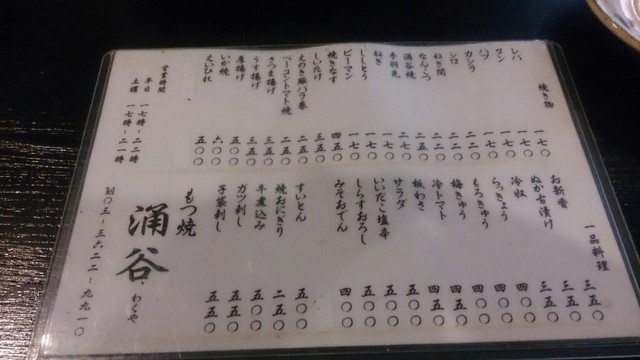 焼き物
レバ 一七〇
タン 一七〇
ハツ 一七〇
カシラ 一七〇
シロ 一七〇
ねぎ間 二二〇
なんこつ 二二〇
涌谷焼 二二〇
手羽先 二五〇
ねぎ 一七〇
ししとう 一七〇
ピーマン 一七〇
焼きなす 四五〇
しいたけ 三五〇
えのき豚バラ巻 二五〇
ベーコントマト焼 二五〇
さつま揚げ 三五〇
うす揚げ 三五〇
厚揚げ 五五〇
いか焼 六五〇
えいひれ 五五〇
営業時間
平日 一七時~二二時
土曜 一七時~二一時
一品料理
お新香 三五〇
ぬか古漬け 三五〇
冷奴 三五〇
らっきょう 四〇〇
もろきゅう 四〇〇
梅きゅう 四〇〇
冷トマト 四五〇
板わさ 五〇〇
サラダ 五〇〇
いいだこ塩辛 五〇〇
しらすおろし 四〇〇
みそおでん 四〇〇
すいとん 五五〇
焼おにぎり 二五〇
牛煮込み 五五〇
ガツ刺し 五五〇
子袋刺し 五五〇
もつ焼
涌谷
わくや
〇三-三六二二-九九一〇